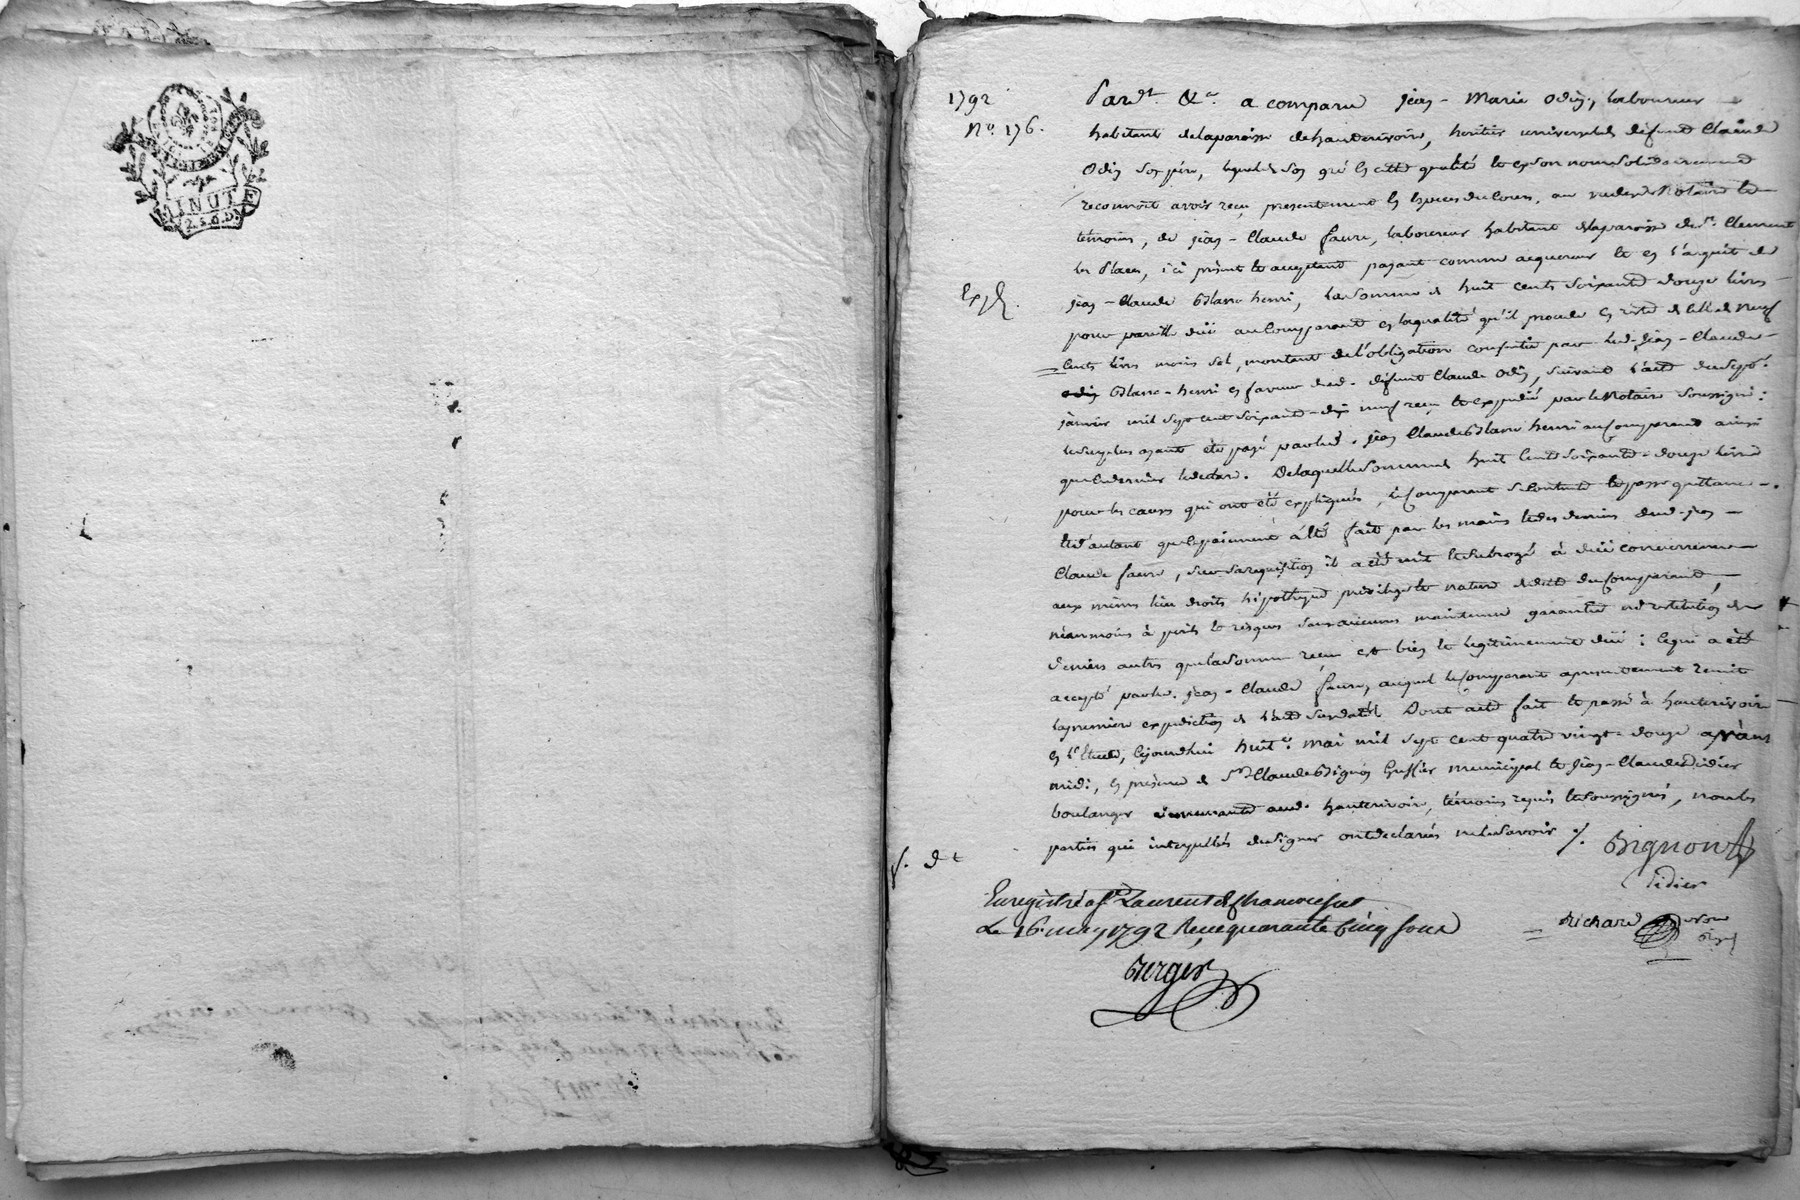 MINUTE
2.s.6.D.
1792
N.º 176.
Pard.t &c.a a comparu jean-Marie Odin, laboureur
habitant delaparoisse dehauterivoire, heritier universel de défunt Claude
Odin son père, lequel de son gré en cette qualité et en son nom solidairement
reconnoit avoir reçu presentement en especes du cours, au vu des Notaire et
témoins, de jean-Claude faure, laboureur habitant delaparoisse de St. Clement
les places, ici présent et acceptant payant comme acquereur et en l'acquit de
Exp.é
jean-Claude Blanc henri, la somme de huit cents soixante douze livres
pour pareille düe au Comparant en la qualité qu'il procede en reste de celle de neuf
Cents livres moins sol, montant de l'obligation consentie par led. jean-Claude
Blanc-henri en faveur dud. défunt Claude Odin, suivant l'acte du sept.e
janvier mil sept cent soixante-dix neuf reçu et expedié par le Notaire soussigné:
le surplus ayant été payé par led. jean Claude Blanc henri au Comparant ainsi
que ce dernier le declare. De laquelle somme de huit cents soixante-douze livres
pour les causes qui ont été expliquées, le Comparant se contente et passe quittance.
et d'autant que le paiement a été fait par les mains et des deniers dud. jean
Claude faure, sur sa requisition il a été mis et subrogé à düe concurrence
aux mêmes lieu droits hipotheque privilege et nature de dette du Comparant,
néanmoins à perils et risques sans aucune maintenue garantie ni restitution de
deniers autres que la somme reçue est bien et legitimement düe; ce qui a été
accepté par led. jean-Claude faure, auquel le Comparant a presentement remis
la premiere expedition de l'acte sus daté. Dont acte fait et passé à hauterivoire
en l'Etude, cejourdhui huit.e mai mil sept cent quatre vingt-douze avant
midi, en presence de Sr. Claude Bignon Greffier municipal et jean-Claude Didier
boulanger demeurants aud. hauterivoire, témoins requis et soussignés, non les
parties qui interpellées de signer ont declarés ne le savoir ./.
Bignon
Didier
Richard
Enregistré a St. Laurent de chamousset
Le 16. may 1792 Reçu quarante Cinq sous
Berger